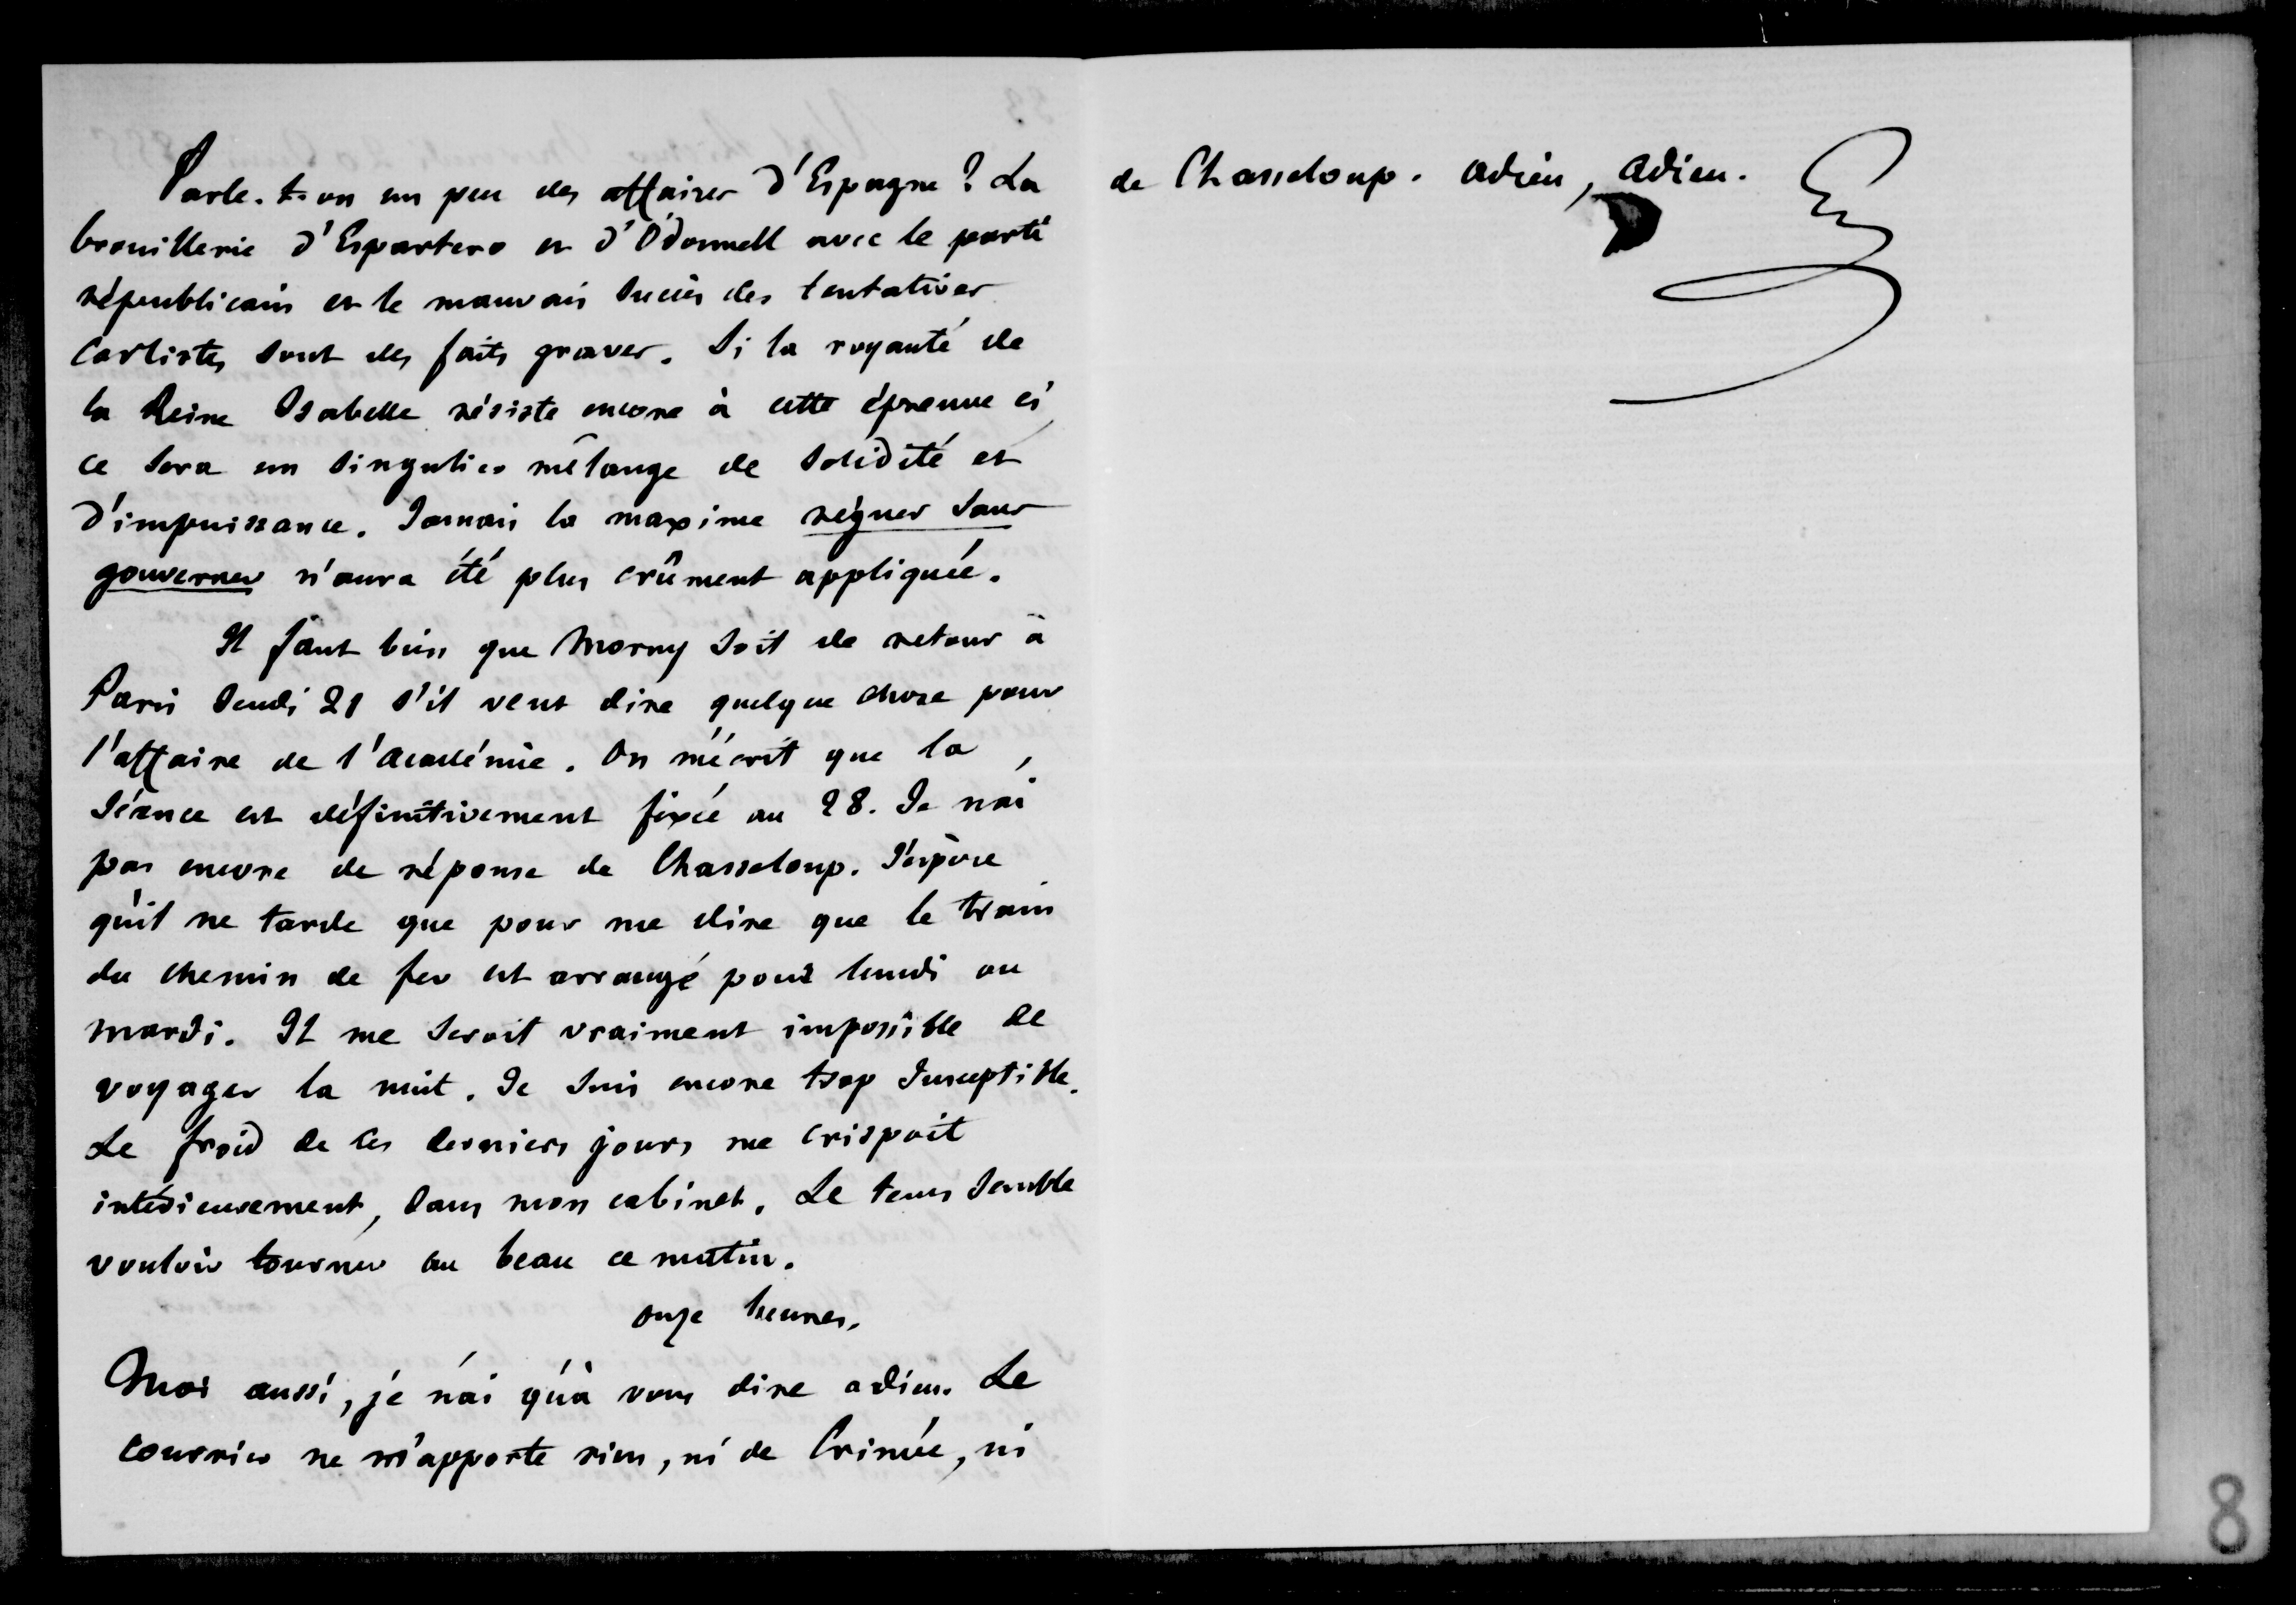 Parle-t-on un peu des affaires d'Espagne ? La
brouillerie d'Espartero et d'O'donnell avec le parti
républicain et le mauvais succès des tentatives
carlistes sont des faits graves. Si la royauté de
la Reine Isabelle résiste encore à cette épreuve ci,
ce sera un singulier mélange de solidité et
d'impuissance. Jamais la maxime régner sans
gouverner n'aura été plus crûment appliquée.
Il faut bien que Morny soit de retour à
Paris Jeudi 21 s'il veut dire quelque chose pour
l'affaire de l'Académie. On m'écrit que la
séance est définitivement fixée au 28. Je n'ai
pas encore de réponse de Chasseloup. J'espère
qu'il ne tarde que pour me dire que le train
du chemin de fer est arrangé pour lundi ou
mardi. Il me seroit vraiment impossible de
voyager la nuit. Je suis encore trop susceptible.
Le froid de ces derniers jours me crispoit
intérieurement, dans mon cabinet. Le tems semble
vouloir tourner au beau ce matin.
onze heures.
Moi aussi, je n'ai qu'à vous dire adieu. Le
courrier ne m'apporte rien, ni de Crimée, ni
de Chasseloup. Adieu, Adieu.
8